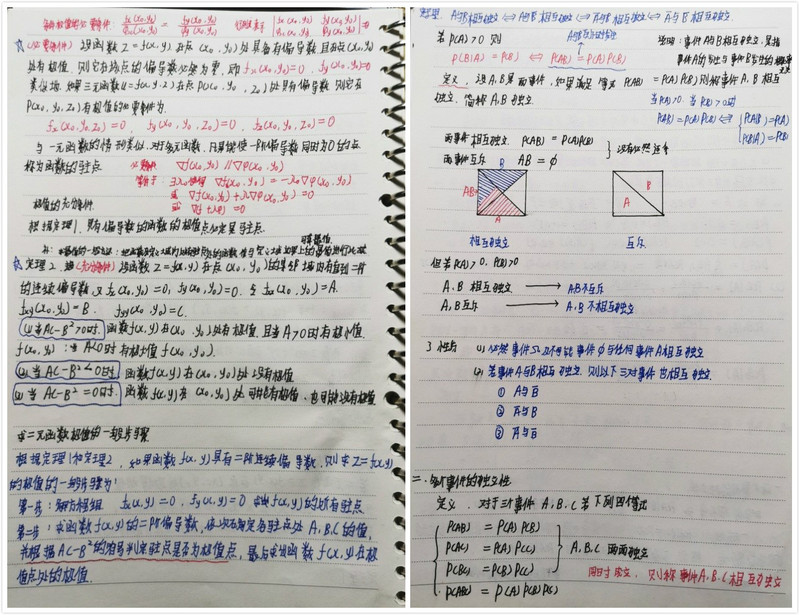 ☆(必要条件) 设函数 z=f(x,y)在点(x₀,y₀)处具有偏导数且在点(x₀,y₀)
处有极值,则它在该点的偏导数必然为零,即 fx(x₀,y₀)=0, fy(x₀,y₀)=0
类似地,如果三元函数u=f(x,y,z)在点P(x₀,y₀,z₀)处具有偏导数 则它在
P(x₀,y₀,z₀)有极值的必要条件为
fx(x₀,y₀,z₀)=0, fy(x₀,y₀,z₀)=0, fz(x₀,y₀,z₀)=0
与一元函数的情形类似,对于多元函数,凡是能使一阶偏导数同时为0的点
称为函数的驻点
必要条件 ∇f(x₀,y₀) // ∇φ(x₀,y₀)
∇f(x₀,y₀) = -λ₀∇φ(x₀,y₀)
或 ∇f(x₀,y₀)+λ∇φ(x₀,y₀)=0
极值的充分条件
根据定理1,具有偏导数的函数的极值点必定是驻点
☆定理2 (充分条件) 设函数 z=f(x,y)在点(x₀,y₀)的某邻域内有直到二阶
的连续偏导数,又fx(x₀,y₀)=0, fy(x₀,y₀)=0. 令 =A
fxy(x₀,y₀)=B. fyy(x₀,y₀)=C.
(1)当AC-B²>0时,函数f(x,y)在(x₀,y₀)处有极值,且当A>0时有极小值
f(x₀,y₀);当A<0时有极大值f(x₀,y₀).
(2)当AC-B²<0时 函数f(x,y)在(x₀,y₀)处没有极值
当AC-B²=0时 函数f(x,y)在(x₀,y₀)处可能有极值,也可能没有极值
求二元函数极值的一般步骤
根据定理1和定理2,如果函数f(x,y)具有二阶连续偏导数,则求z=f(x,y)
的极值的一般步骤为:
第一步:解方程组 fx(x,y)=0, fy(x,y)=0 求出f(x,y)的所有驻点
第二步:求函数f(x,y)的二阶偏导数,依次确定各驻点处A,B,C的值,
并根据AC-B²的符号判定驻点是否为极值点,最后求出函数f(x,y)在极
值点处的极值.
A与B相互独立 ⟺ A与B̄相互独立 ⟺ Ā与B相互独立 ⟺ Ā与B̄相互独立
若P(A)>0 则
P(B|A) = P(B) ⟺ P(AB)=P(A)P(B)
说明:事件A与B相互独立,是指
事件A的发生与事件B发生的概率无关
定义. 设A,B是两事件,如果满足等式 P(AB)=P(A)P(B)则称事件A,B相互
独立,简称A,B独立
当P(A)>0,当P(B)>0时
P(AB)=P(A)P(B) ⟺ { P(A|B)=P(A)
P(B|A)=P(B)
两事件相互独立 P(AB)=P(A)P(B)
两事件互斥 AB=∅
} 没有必然联系
B
AB
A
B
A
相互独立
互斥
但若P(A)>0, P(B)>0
A,B相互独立 → A,B不互斥
A,B互斥 → A,B不相互独立
3 性质 (1)必然事件Ω及不可能事件∅与任何事件A相互独立
(2)若事件A与B相互独立,则以下三对事件也相互独立
① A与B̄
② Ā与B
③ Ā与B̄
二. 多个事件的独立性
定义. 对于三个事件A,B,C若下列四个等式
P(AB) = P(A)P(B)
P(AC) = P(A)P(C)
P(BC) = P(B)P(C)
} A,B,C两两独立
P(ABC) = P(A)P(B)P(C)
同时成立,则称事件A,B,C相互独立